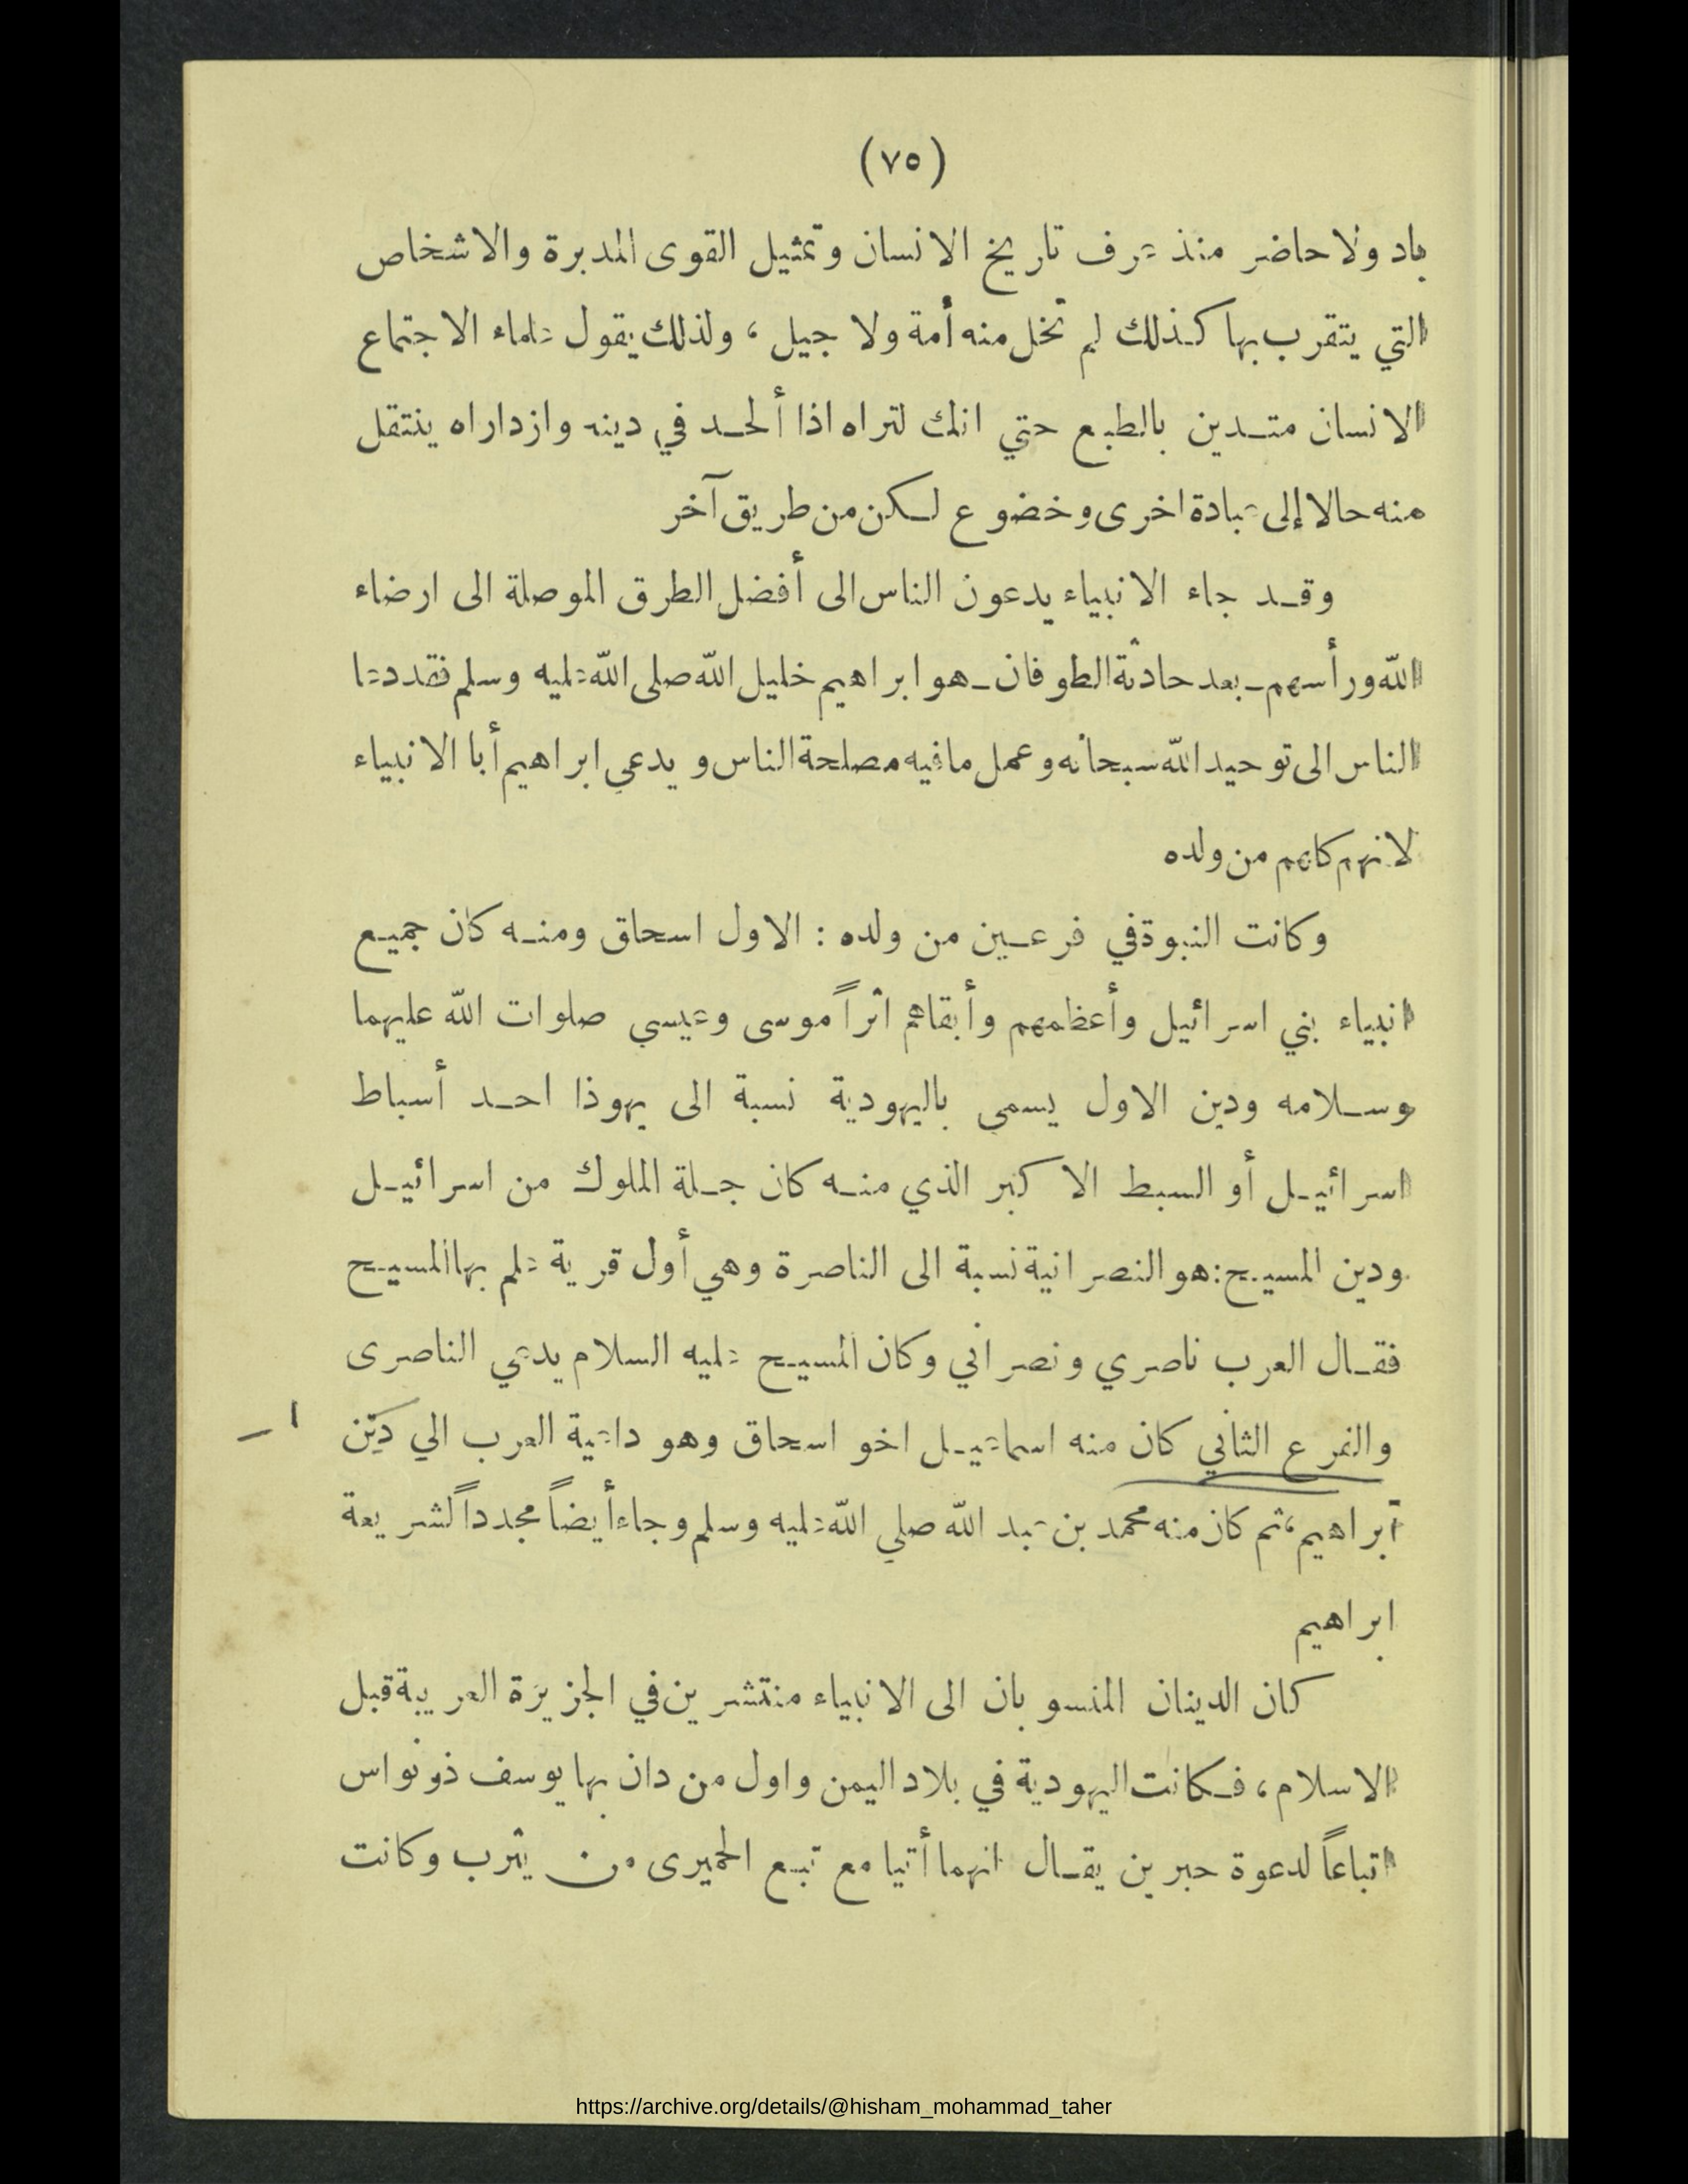 (٧٥)
باد ولا حاضر منذ عرف تاريخ الانسان وتمثيل القوى المدبرة والاشخاص
التي يتقرب بها كذلك لم تخل منه أمة ولا جيل ، ولذلك يقول علماء الاجتماع
الانسان متدين بالطبع حتي انك لتراه اذا ألحد في دينه وازداراه ينتقل
منه حالا إلى عبادة اخرى وخضوع لكن من طريق آخر
وقد جاء الانبياء يدعون الناس الى أفضل الطرق الموصلة الى ارضاء
الله ورأسهم ـ بعد حادثة الطوفان ـ هو ابراهيم خليل الله صلى الله عليه وسلم فقد دعا
الناس الى توحيد الله سبحانه وعمل ما فيه مصلحة الناس ويدعي ابراهيم أبا الانبياء
لانهم كلهم من ولده
وكانت النبوة في فرعين من ولده : الاول اسحاق ومنه كان جميع
انبياء بني اسرائيل وأعظمهم وأبقاهم اثراً موسى وعيسي صلوات الله عليهما
وسلامه ودين الاول يسمي باليهودية نسبة الى يهوذا احد أسباط
اسرائيل أو السبط الاكبر الذي منه كان جلة الملوك من اسرائيل
ودين المسيح : هو النصرانية نسبة الى الناصرة وهي أول قرية علم بها المسيح
فقال العرب ناصري ونصراني وكان المسيح عليه السلام يدعي الناصرى
والفرع الثاني كان منه اسماعيل اخو اسحاق وهو داعية العرب الي دين
ابراهيم ، ثم كان منه محمد بن عبد الله صلي الله عليه وسلم وجاء أيضاً مجدداً لشريعة
ابراهيم
كان الدينان المنسوبان الى الانبياء منتشرين في الجزيرة العربية قبل
الاسلام ، فكانت اليهودية في بلاد اليمن واول من دان بها يوسف ذو نواس
اتباعاً لدعوة حبرين يقال انهما أتيا مع تبع الحميرى من يثرب وكانت
https://archive.org/details/@hisham_mohammad_taher